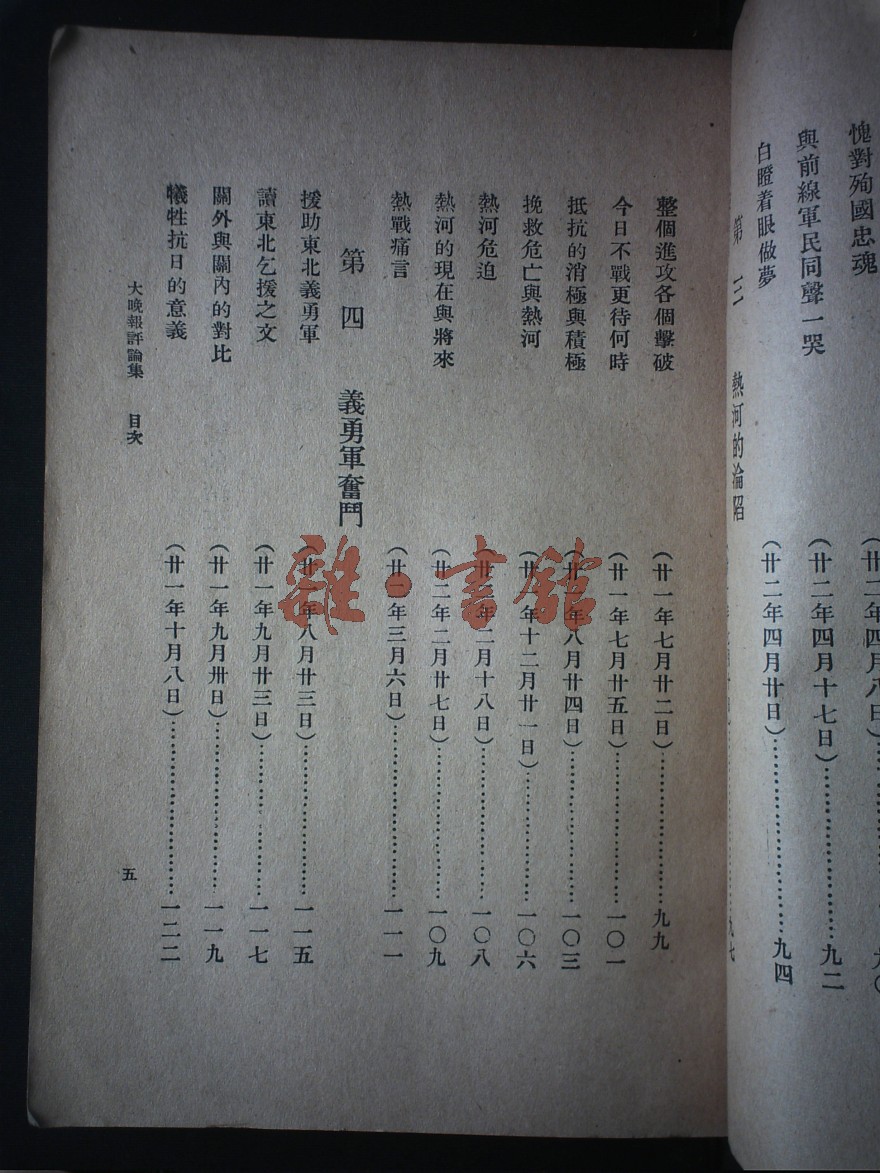 愧對殉國忠魂
(廿二年四月八日)……九〇
與前線軍民同聲一哭
(廿二年四月十七日)……九二
白瞪着眼做夢
(廿二年四月廿日)……九四
第三 熱河的淪陷
九七
整個進攻各個擊破
(廿一年七月廿二日)……九九
今日不戰更待何時
(廿一年七月廿五日)……一〇一
抵抗的消極與積極
(廿一年八月廿四日)……一〇三
挽救危亡與熱河
(廿一年十二月廿一日)……一〇六
熱河危迫
(廿二年二月十八日)……一〇八
熱河的現在與將來
(廿二年二月廿七日)……一〇九
熱戰痛言
(廿一年三月六日)……一一一
第四 義勇軍奮鬥
援助東北義勇軍
(廿一年八月廿三日)……一一五
讀東北乞援之文
(廿一年九月廿三日)……一一七
關外與關內的對比
(廿一年九月卅日)……一一九
犧牲抗日的意義
(廿一年十月八日)……一二二
大晚報評論集 目次
五
雜·書館